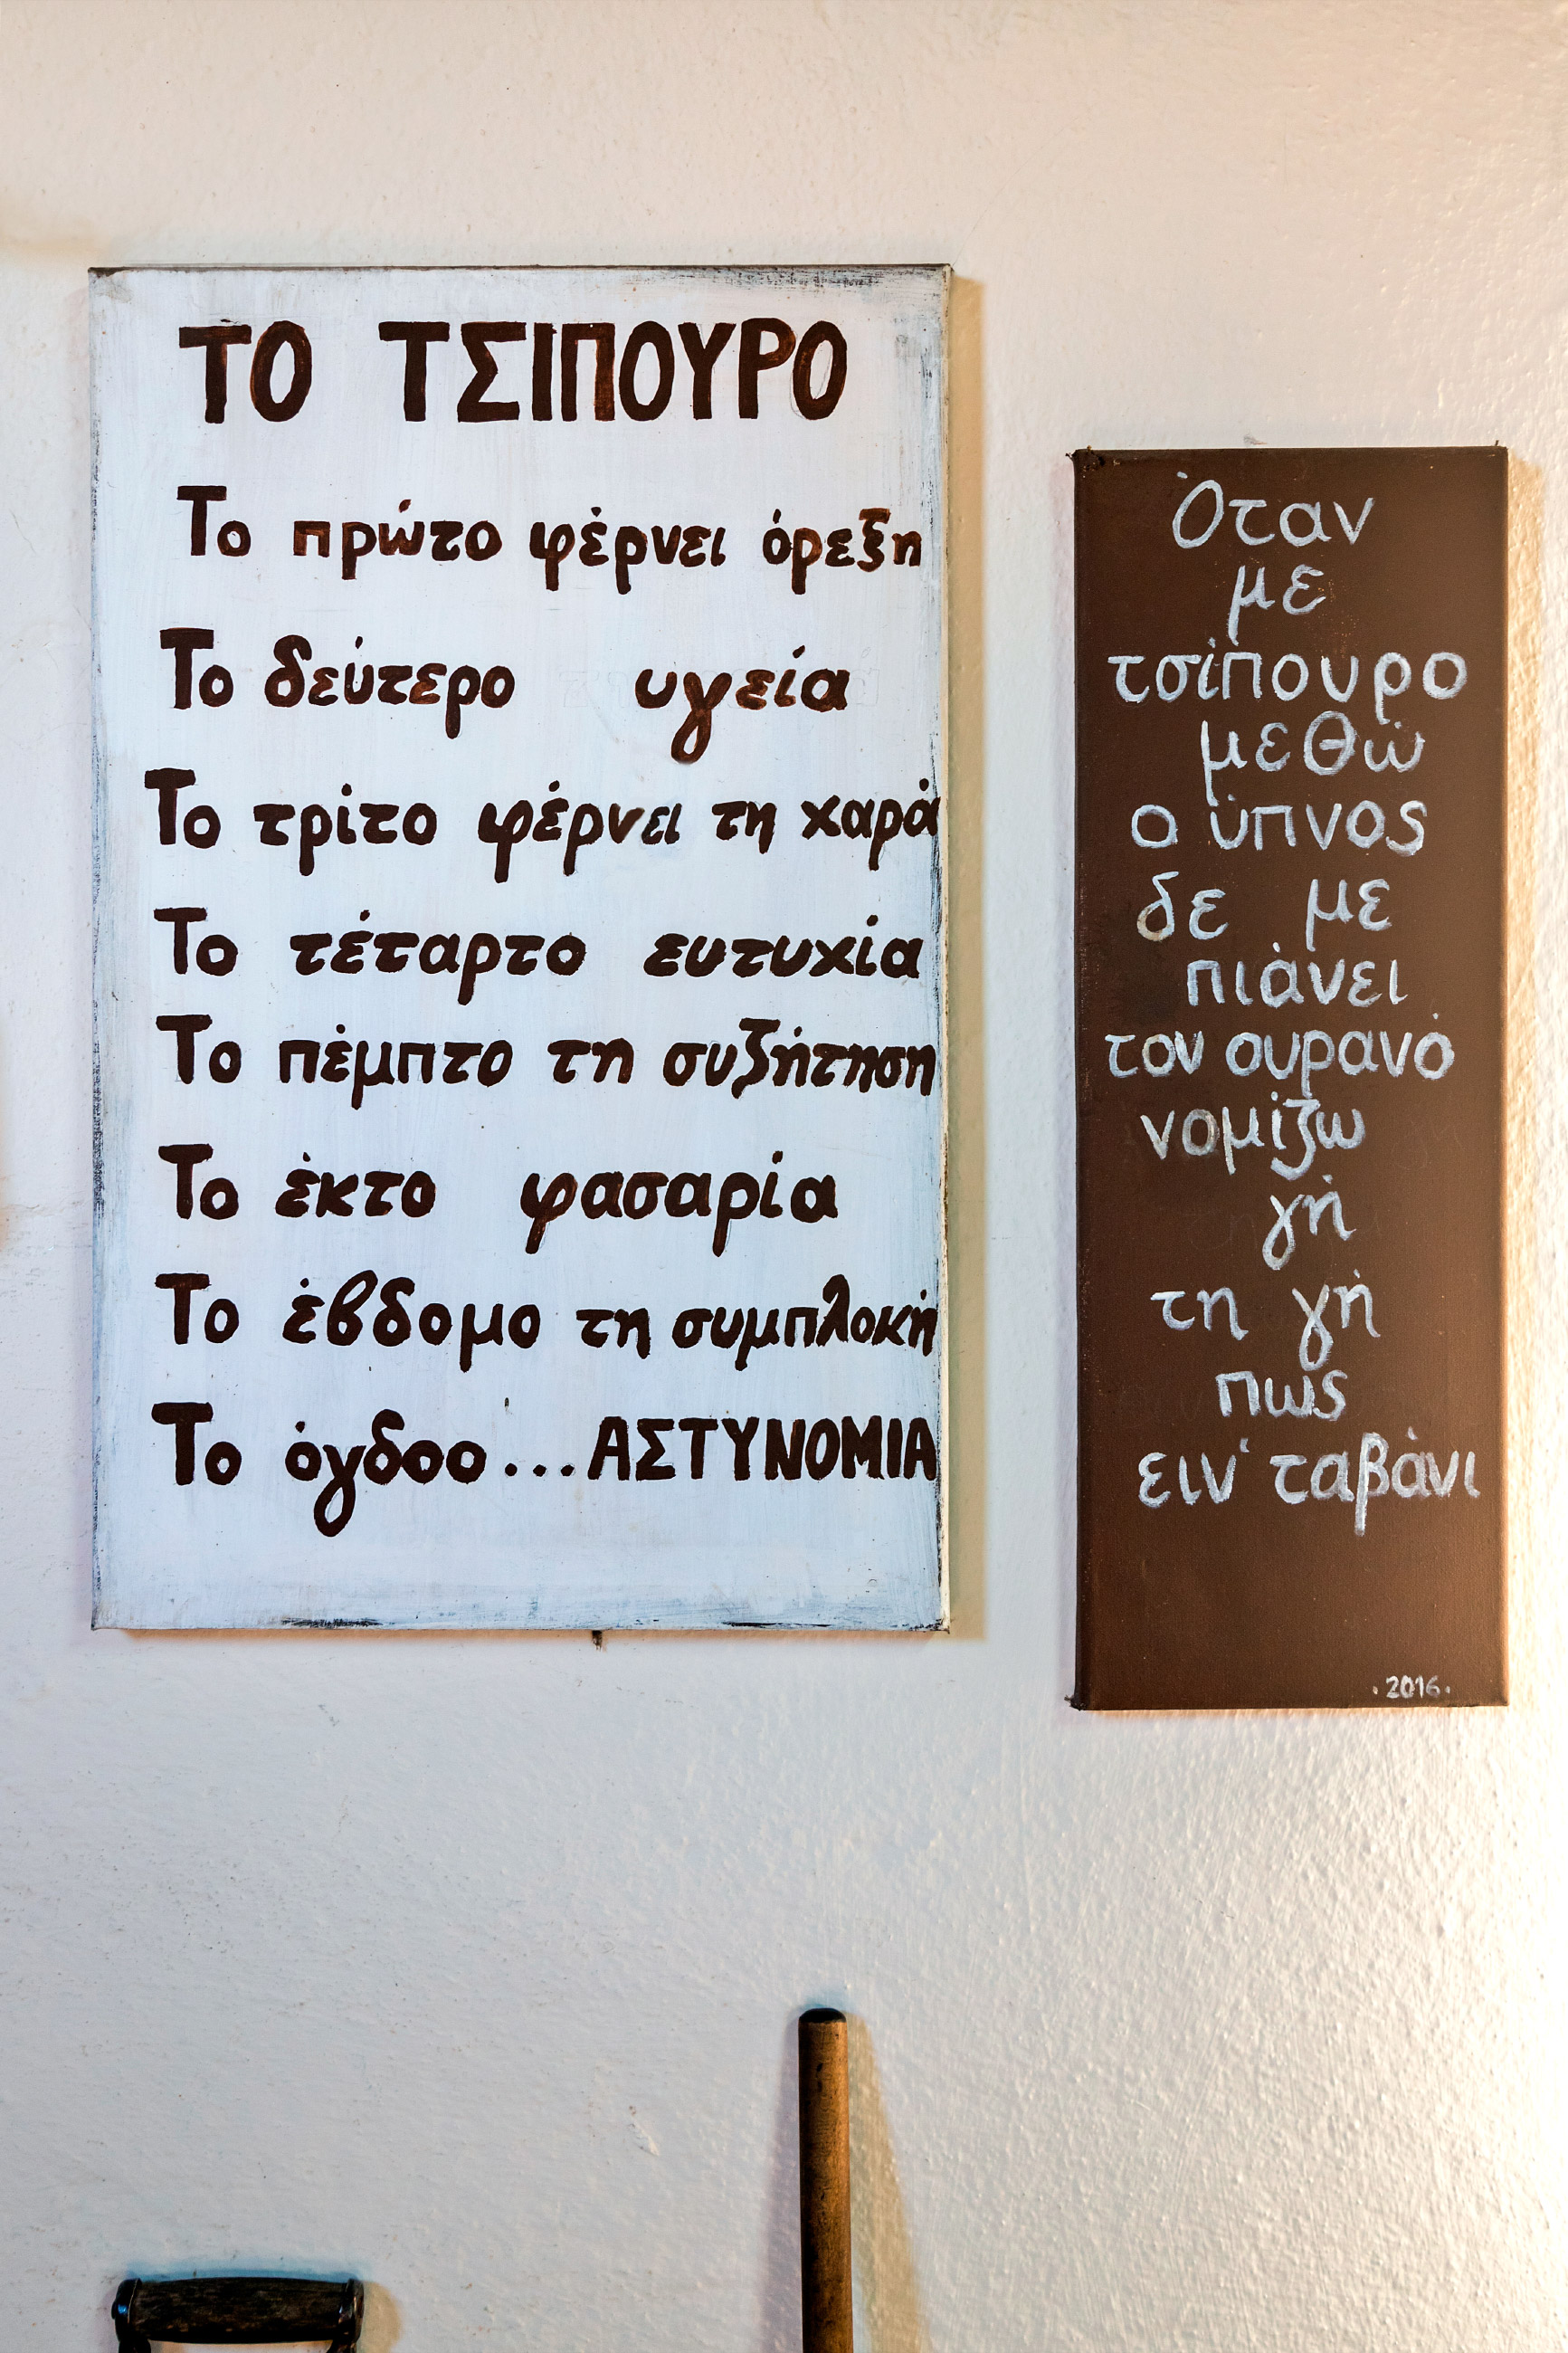 ΤΟ ΤΣΙΠΟΥΡΟ
Το πρώτο φέρνει όρεξη
Το δεύτερο υγεία
Το τρίτο φέρνει τη χαρά
Το τέταρτο ευτυχία
Το πέμπτο τη συζήτηση
Το έκτο φασαρία
Το έβδομο τη συμπλοκή
Το όγδοο...ΑΣΤΥΝΟΜΙΑ
Όταν
με
τσίπουρο
μεθώ
ο ύπνος
δε με
πιάνει
τον ουρανό
νομίζω
γή
τη γή
πως
ειν' ταβάνι
.2016.